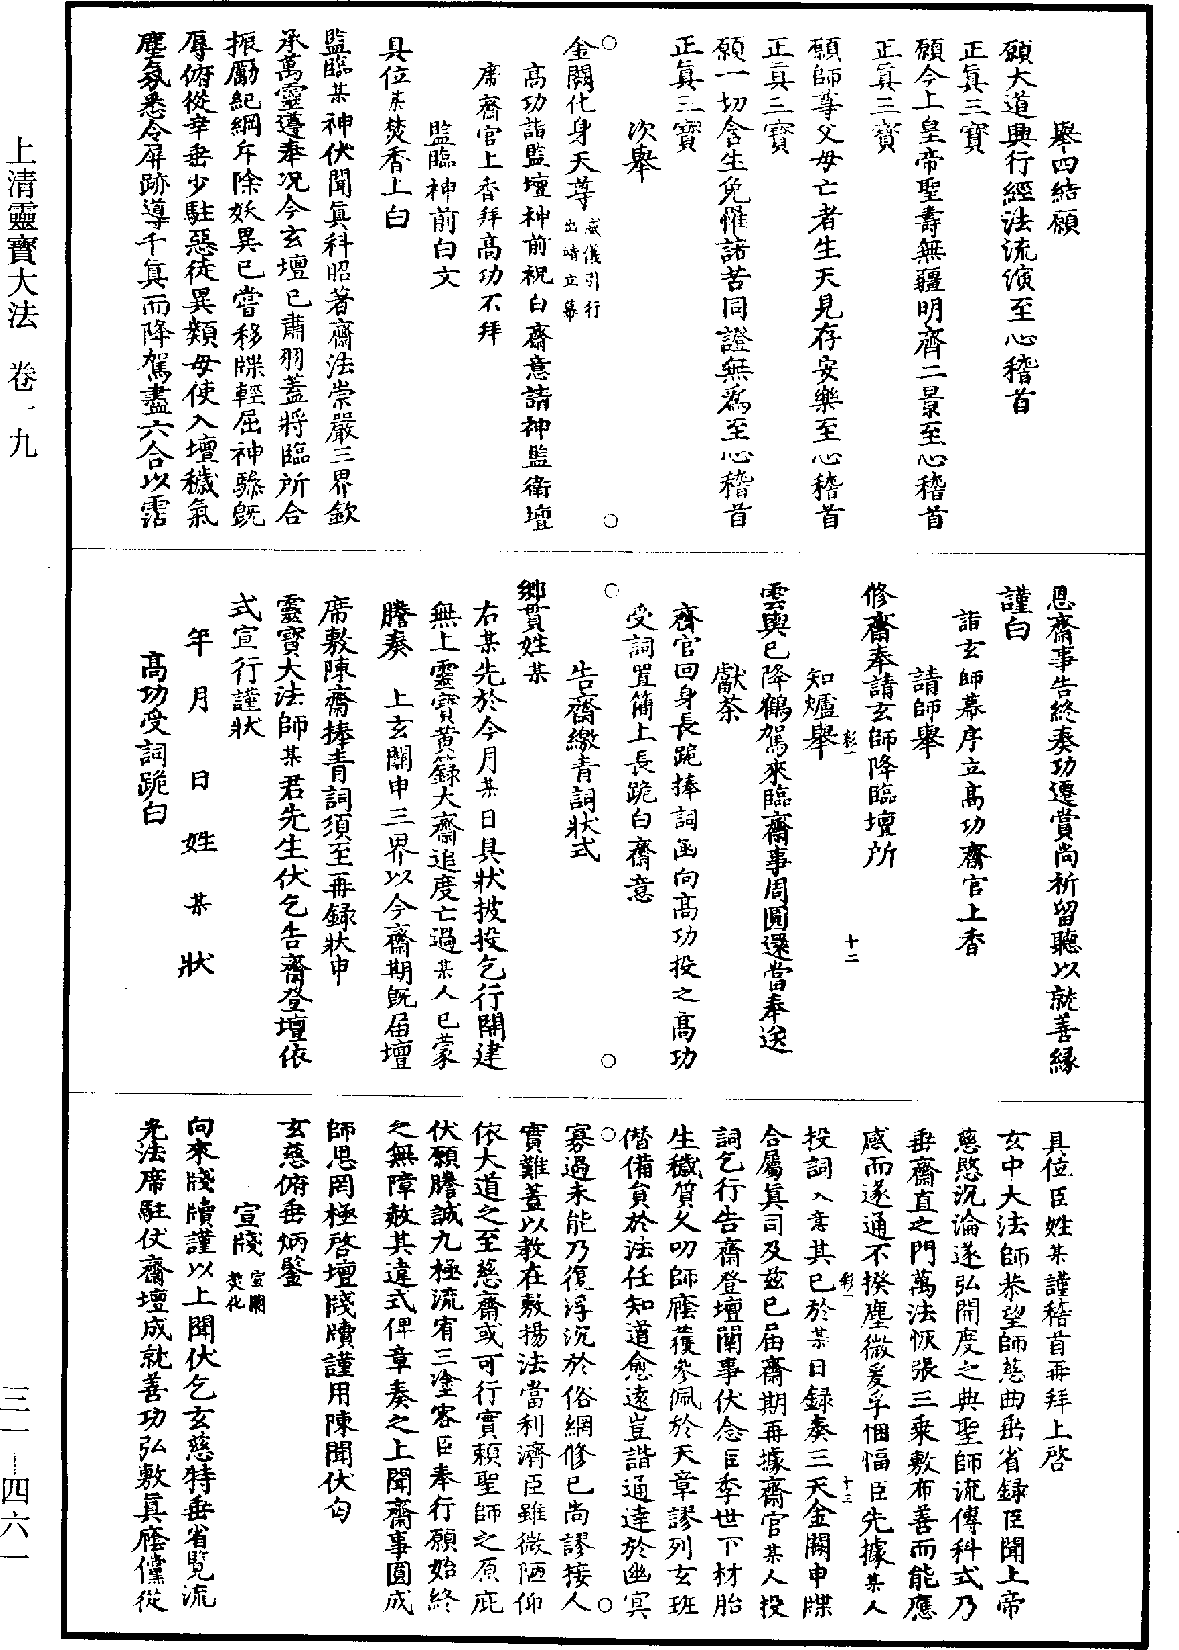 舉四結願
願大道興行經法流演至心稽首
正眞三寳
願今上皇帝聖壽無疆明齊二景至心稽首
正眞三寳
願師尊父母亡者生天見存安樂至心稽首
正眞三寳
願一切含生免罹諸苦同證無爲至心稽首
正眞三寳
次舉
金闕化身天尊 威儀引行出時立幕
高功詣監壇神前祝白齋意請神監衛壇
席齋官上香拜高功不拜
監臨神前白文
具位某焚香上白
監臨某神伏聞眞科昭著齋法崇嚴三界欽
承萬靈遵奉况今玄壇已肅羽蓋將臨所合
振勵紀綱斥除妖異已嘗移牒輕屈神驂旣
辱俯從幸垂少駐惡徒異類毋使入壇穢氣
塵氛悉令屏跡導千眞而降駕盡六合以霑
恩齋事告終奏功遷賞尚祈留聽以就善緣
謹白
詣玄師幕序立高功齋官上香
請師舉
修齋奉請玄師降臨壇所
十二
知爐舉
雲輿已降鶴駕來臨齋事周圓還當奉送
獻茶
齊官回身長跪捧詞函向高功投之高功
受詞置簡上長跪白齋意
告齋繳青詞狀式
鄉貫姓某
右某先於今月某日具狀披投乞行開建
無上靈寳黃籙大齋追度亡過某人已蒙
謄奏 上玄關申三界以今齋期旣届壇
席敷陳齋捧青詞須至再錄狀申
靈寳大法師某君先生伏乞告齋登壇依
式宣行謹狀
年 月 日 姓 某 狀
高功受詞跪白
具位臣姓某謹稽首再拜上啓
玄中大法師恭望師慈曲垂省錄臣聞上帝
慈愍沉淪遂弘開度之典聖師流傳科式乃
垂齋直之門萬法恢張三乘敷布善而能應
感而遂通不揆塵微爰孚悃愊臣先據某人
十三
投詞入意其已於某日録奏三天金闕申牒
合屬眞司及兹已届齋期再據齋官某人投
詞乞行告齋登壇關事伏念臣季世下材胎
生穢質久叨師廕獲參佩於天章謬列玄班
僭備貟於法任知道愈遠豈諧通達於幽冥
寡過未能乃復浮沉於俗網修已尚謬接人
實難蓋以教在敷揚法當利濟臣雖微陋仰
依大道之至慈齋或可行實頼聖師之原庇
伏願謄誠九極流宥三塗容臣奉行願始終
之無障敕其違式俾章奏之上聞齋事圓成
師恩罔極啓壇牋牘謹用陳聞伏匃
玄慈俯垂炳鑒
宣牋 宣開焚化
向來牋牘謹以上聞伏乞玄慈特垂省覧流
光法席駐仗齋壇成就善功弘敷眞廕儻從
上清靈寶大法 卷一九
三一–四六一